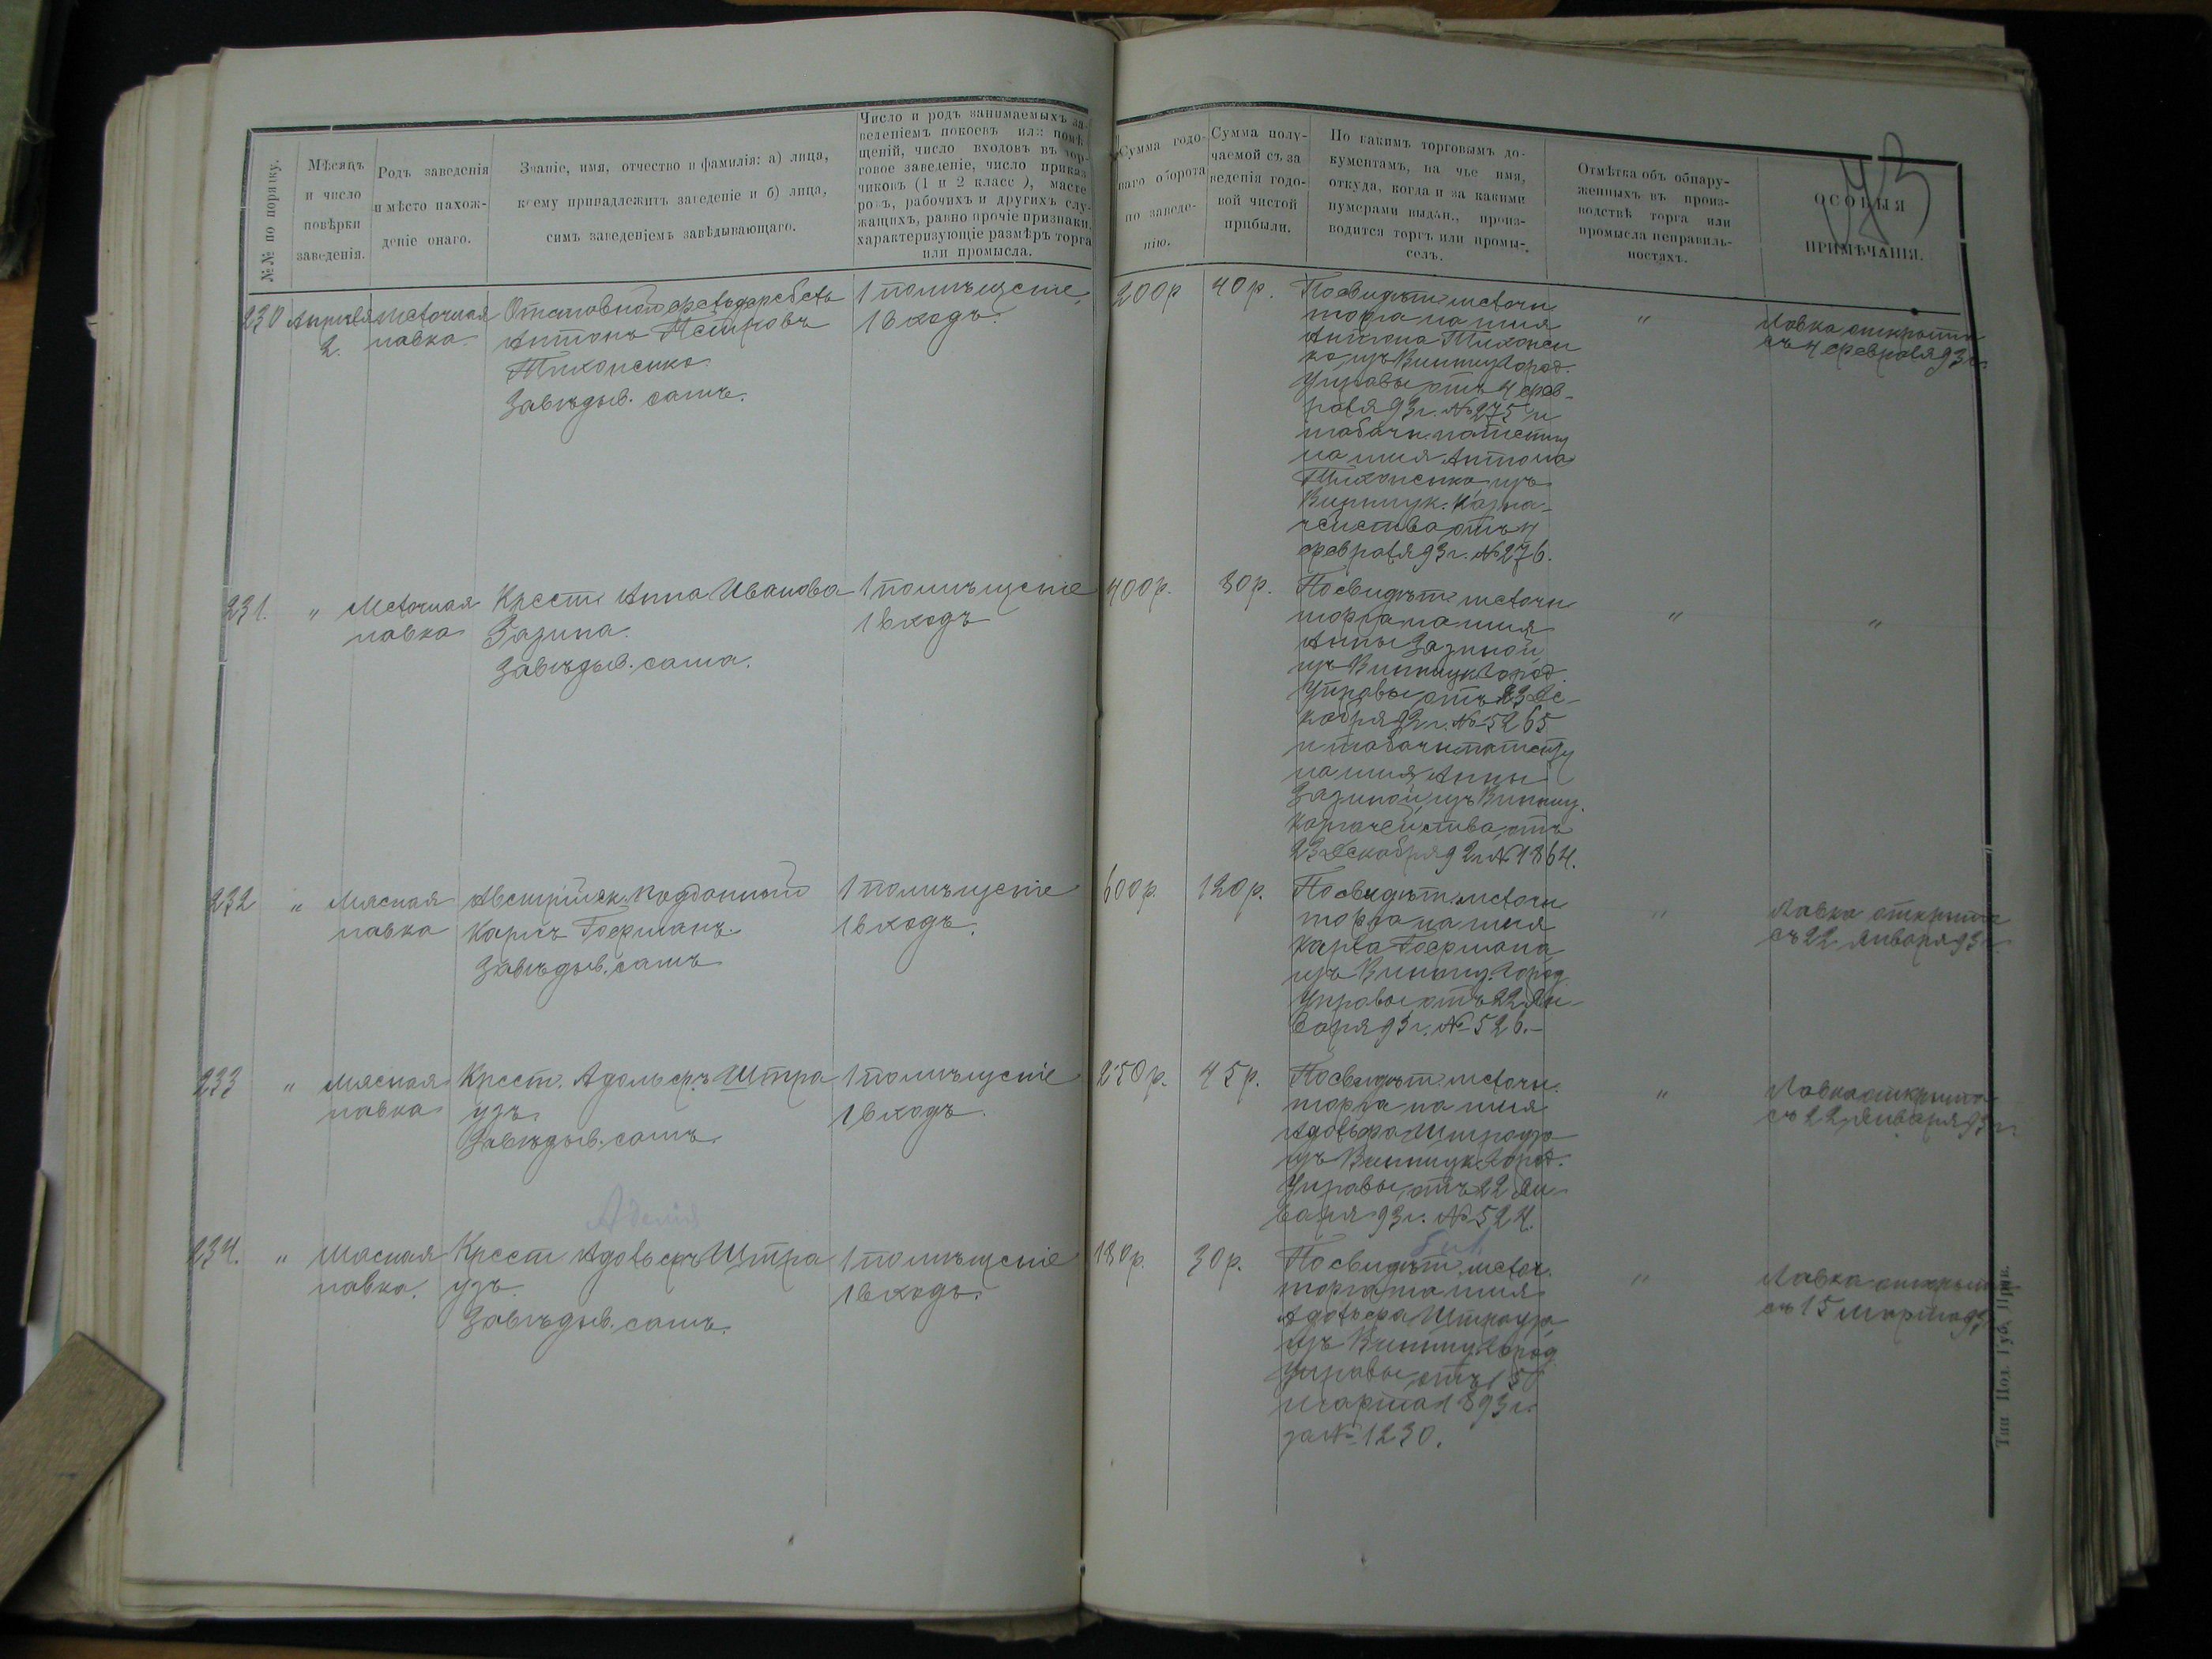 №№ по порядку.
Мѣсяцъ
и число
повѣрки
заведенія.
Родъ заведенія
и мѣсто нахож-
деніе онаго.
Званіе, имя, отчество и фамилія: а) лица,
коему принадлежитъ заведеніе и б) лица,
симъ заведеніемъ завѣдывающаго.
Число и родъ занимаемыхъ за-
веденіемъ покоевъ или помѣ
щеній, число входовъ въ тор-
говое заведеніе, число приказ
чиковъ (1 и 2 класс ), масте
ровъ, рабочихъ и другихъ слу-
жащихъ, равно прочіе признаки,
характеризующіе размѣръ торга
или промысла.
Сумма годо-
ваго оборота
по заведе-
нію.
Сумма полу-
чаемой съ за
веденія годо-
вой чистой
прибыли.
По какимъ торговымъ до-
кументамъ, на чье имя,
откуда, когда и за какими
нумерами выдан., произ-
водится торгъ или промы-
селъ.
Отмѣтка объ обнару-
женныхъ въ произ-
водствѣ торга или
промысла неправиль-
ностяхъ.
ОСОБЫЯ
ПРИМѢЧАНІЯ.
230
Апрѣля
2.
Мелочная
лавка
Антонъ Петровъ
Тихоненко.
Завѣдыв. самъ.
1 помѣщеніе,
1 входъ.
200р
40р.
По свидѣт. мелочн
торга на имя
Антона Тихонен
ко изъ Винниц. Город.
Управы отъ 4 фев-
раля 93 г. № 275 и
табачн. патенту
на имя Антона
Тихоненко изъ
Винницк. Казна-
чейства отъ 4
февраля 93 г. № 276.
"
Лавка открыта
съ 4 февраля 93 г.
231.
"
Мелочная
лавка
Крест. Анна Иванова
Зазина.
Завѣдыв. сама.
1 помѣщеніе
1 входъ
400р.
80р.
По свидѣт. мелочн
торга на имя
Анны Зазиной
изъ Винницк. Город.
Управы отъ 23 Де-
кабря 92 г. № 5265
и табачн. патенту
на имя Анны
Зазиной изъ Винниц.
Казначейства отъ
23 Декабря 92 г. № 1864.
"
"
232
"
Мясная
лавка
Австрійск. подданный
Карлъ Гофманъ.
Завѣдыв. самъ
1 помѣщеніе
1 входъ.
600р.
120р.
По свидѣт. мелочн
торга на имя
Карла Гофмана
изъ Винниц. Город
Управы отъ 22 Ян-
варя 93 г. № 526.-
"
Лавка открыта
съ 22 Января 93 г.
233
"
Мясная
лавка
Крест. Адольфъ Штра
узъ.
Завѣдыв. самъ.
1 помѣщеніе
1 входъ.
250р.
45р.
По свидѣт. мелочн.
торга на имя
Адольфа Штрауза
изъ Винницк. Город.
Управы отъ 22 Ян-
варя 93 г. № 524.
"
Лавка открыта
съ 22 Января 93 г.
234.
"
Мясная
лавка.
Крест Адольфъ Штра
узъ.
Завѣдыв. самъ.
1 помѣщеніе
1 входъ.
180р.
30р.
По свидѣт. мелоч.
торга на имя
Адольфа Штрауза
изъ Винниц. Город
Управы отъ 15
марта 1893 г.
за № 1230.
"
Лавка открыта
съ 15 марта 93
Тип Под. Губ. Прав.